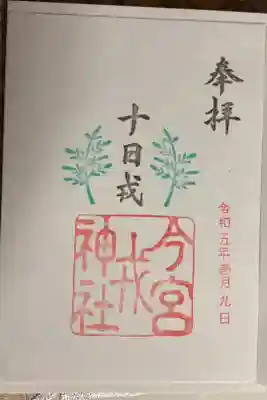 奉拝
令和五年壱月九日
十日戎
今宮
戎
神社